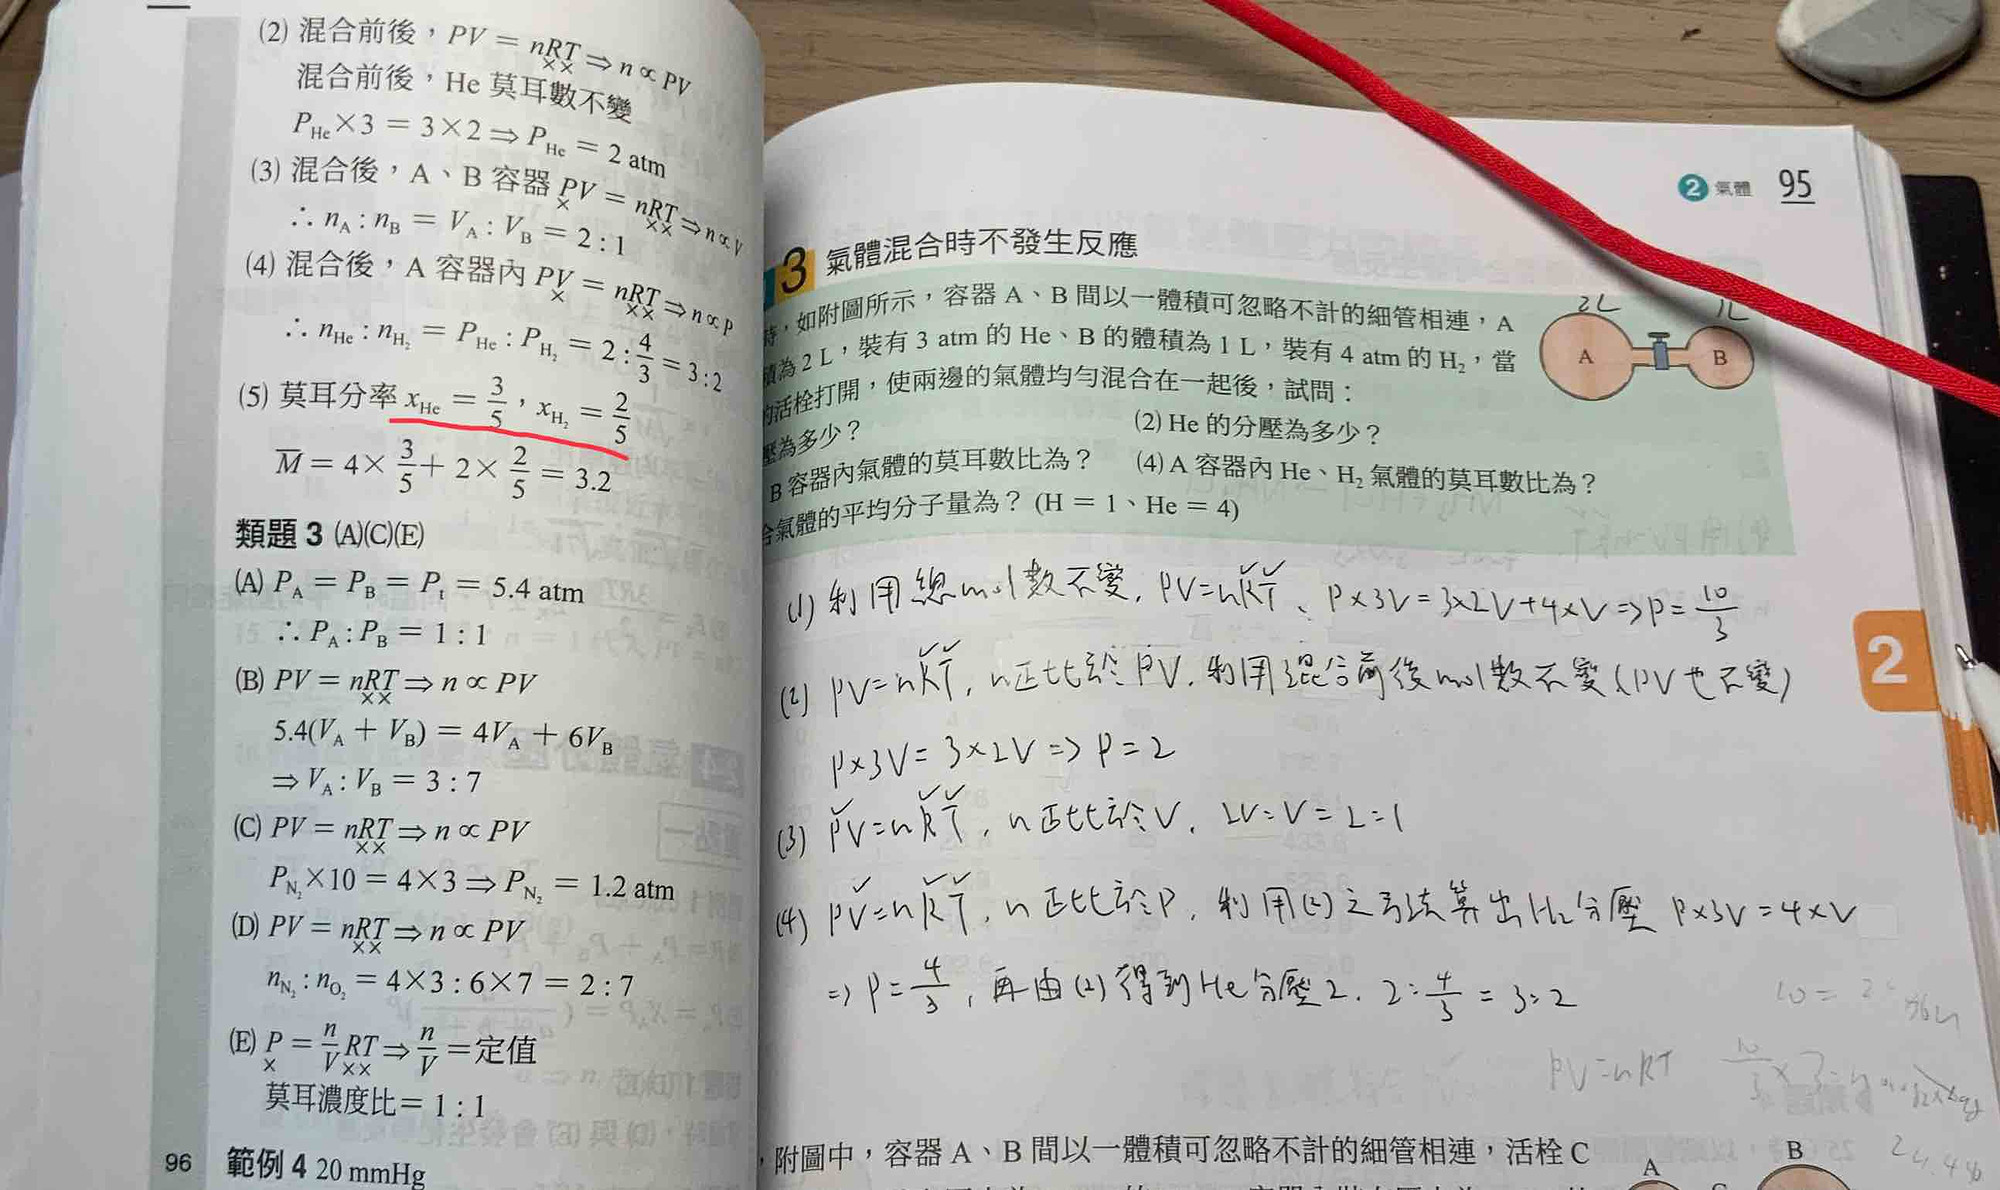 (2) 混合前後，PV = nRT ⇒ n ∝ PV
××
混合前後，He 莫耳數不變
P_He × 3 = 3 × 2 ⇒ P_He = 2 atm
(3) 混合後，A、B 容器 PV = nRT ⇒ n ∝ V
× ××
∴ n_A : n_B = V_A : V_B = 2 : 1
(4) 混合後，A 容器內 PV = nRT ⇒ n ∝ P
× ××
∴ n_He : n_H₂ = P_He : P_H₂ = 2 : 4/3 = 3 : 2
(5) 莫耳分率 x_He = 3/5，x_H₂ = 2/5
M̄ = 4 × 3/5 + 2 × 2/5 = 3.2
類題 3 (A)(C)(E)
(A) P_A = P_B = P_t = 5.4 atm
∴ P_A : P_B = 1 : 1
(B) PV = nRT ⇒ n ∝ PV
××
5.4(V_A + V_B) = 4V_A + 6V_B
⇒ V_A : V_B = 3 : 7
(C) PV = nRT ⇒ n ∝ PV
××
P_N₂ × 10 = 4 × 3 ⇒ P_N₂ = 1.2 atm
(D) PV = nRT ⇒ n ∝ PV
××
n_N₂ : n_O₂ = 4 × 3 : 6 × 7 = 2 : 7
(E) P = n/V RT ⇒ n/V = 定值
× ××
莫耳濃度比 = 1 : 1
96
範例 4 20 mmHg
2 氣體 95
3 氣體混合時不發生反應
時，如附圖所示，容器 A、B 間以一體積可忽略不計的細管相連，A
積為 2 L，裝有 3 atm 的 He、B 的體積為 1 L，裝有 4 atm 的 H₂，當
的活栓打開，使兩邊的氣體均勻混合在一起後，試問：
壓為多少？ (2) He 的分壓為多少？
B 容器內氣體的莫耳數比為？ (4) A 容器內 He、H₂ 氣體的莫耳數比為？
合氣體的平均分子量為？ (H = 1、He = 4)
2L 1L
A B
(1) 利用總mol數不變, PV=nRT、P×3V=3×2V+4×V⇒P=10/3
(2) PV=nRT, n正比於PV, 利用混合前後mol數不變(PV也不變)
P×3V=3×2V⇒P=2
(3) PV=nRT, n正比於V, 2V:V=2:1
(4) PV=nRT, n正比於P, 利用(2)之方法算出H₂分壓 P×3V=4×V
⇒P=4/3, 再由(2)得到He分壓2. 2:4/3=3:2
PV=nRT
2
，附圖中，容器 A、B 間以一體積可忽略不計的細管相連，活栓 C
A B